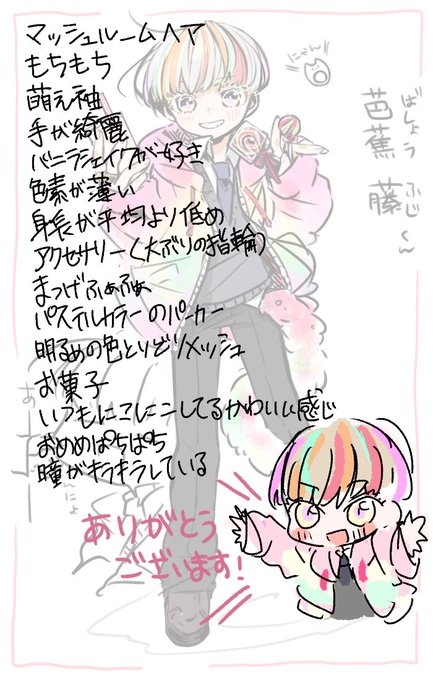 マッシュルームヘア
もちもち
萌え袖
手が綺麗
バニラシェイクが好き
色素が薄い
身長が平均より低め
アクセサリー(大ぶりの指輪)
まつげふぁふぁ
パステルカラーのパーカー
明るめの色とりどりメッシュ
お菓子
いつもにこにこしてるかわいい感じ
おめめぱちぱち
瞳がキラキラしている
ありがとう
ございます!
にゃん
ばしょう
芭蕉
ふじ
藤